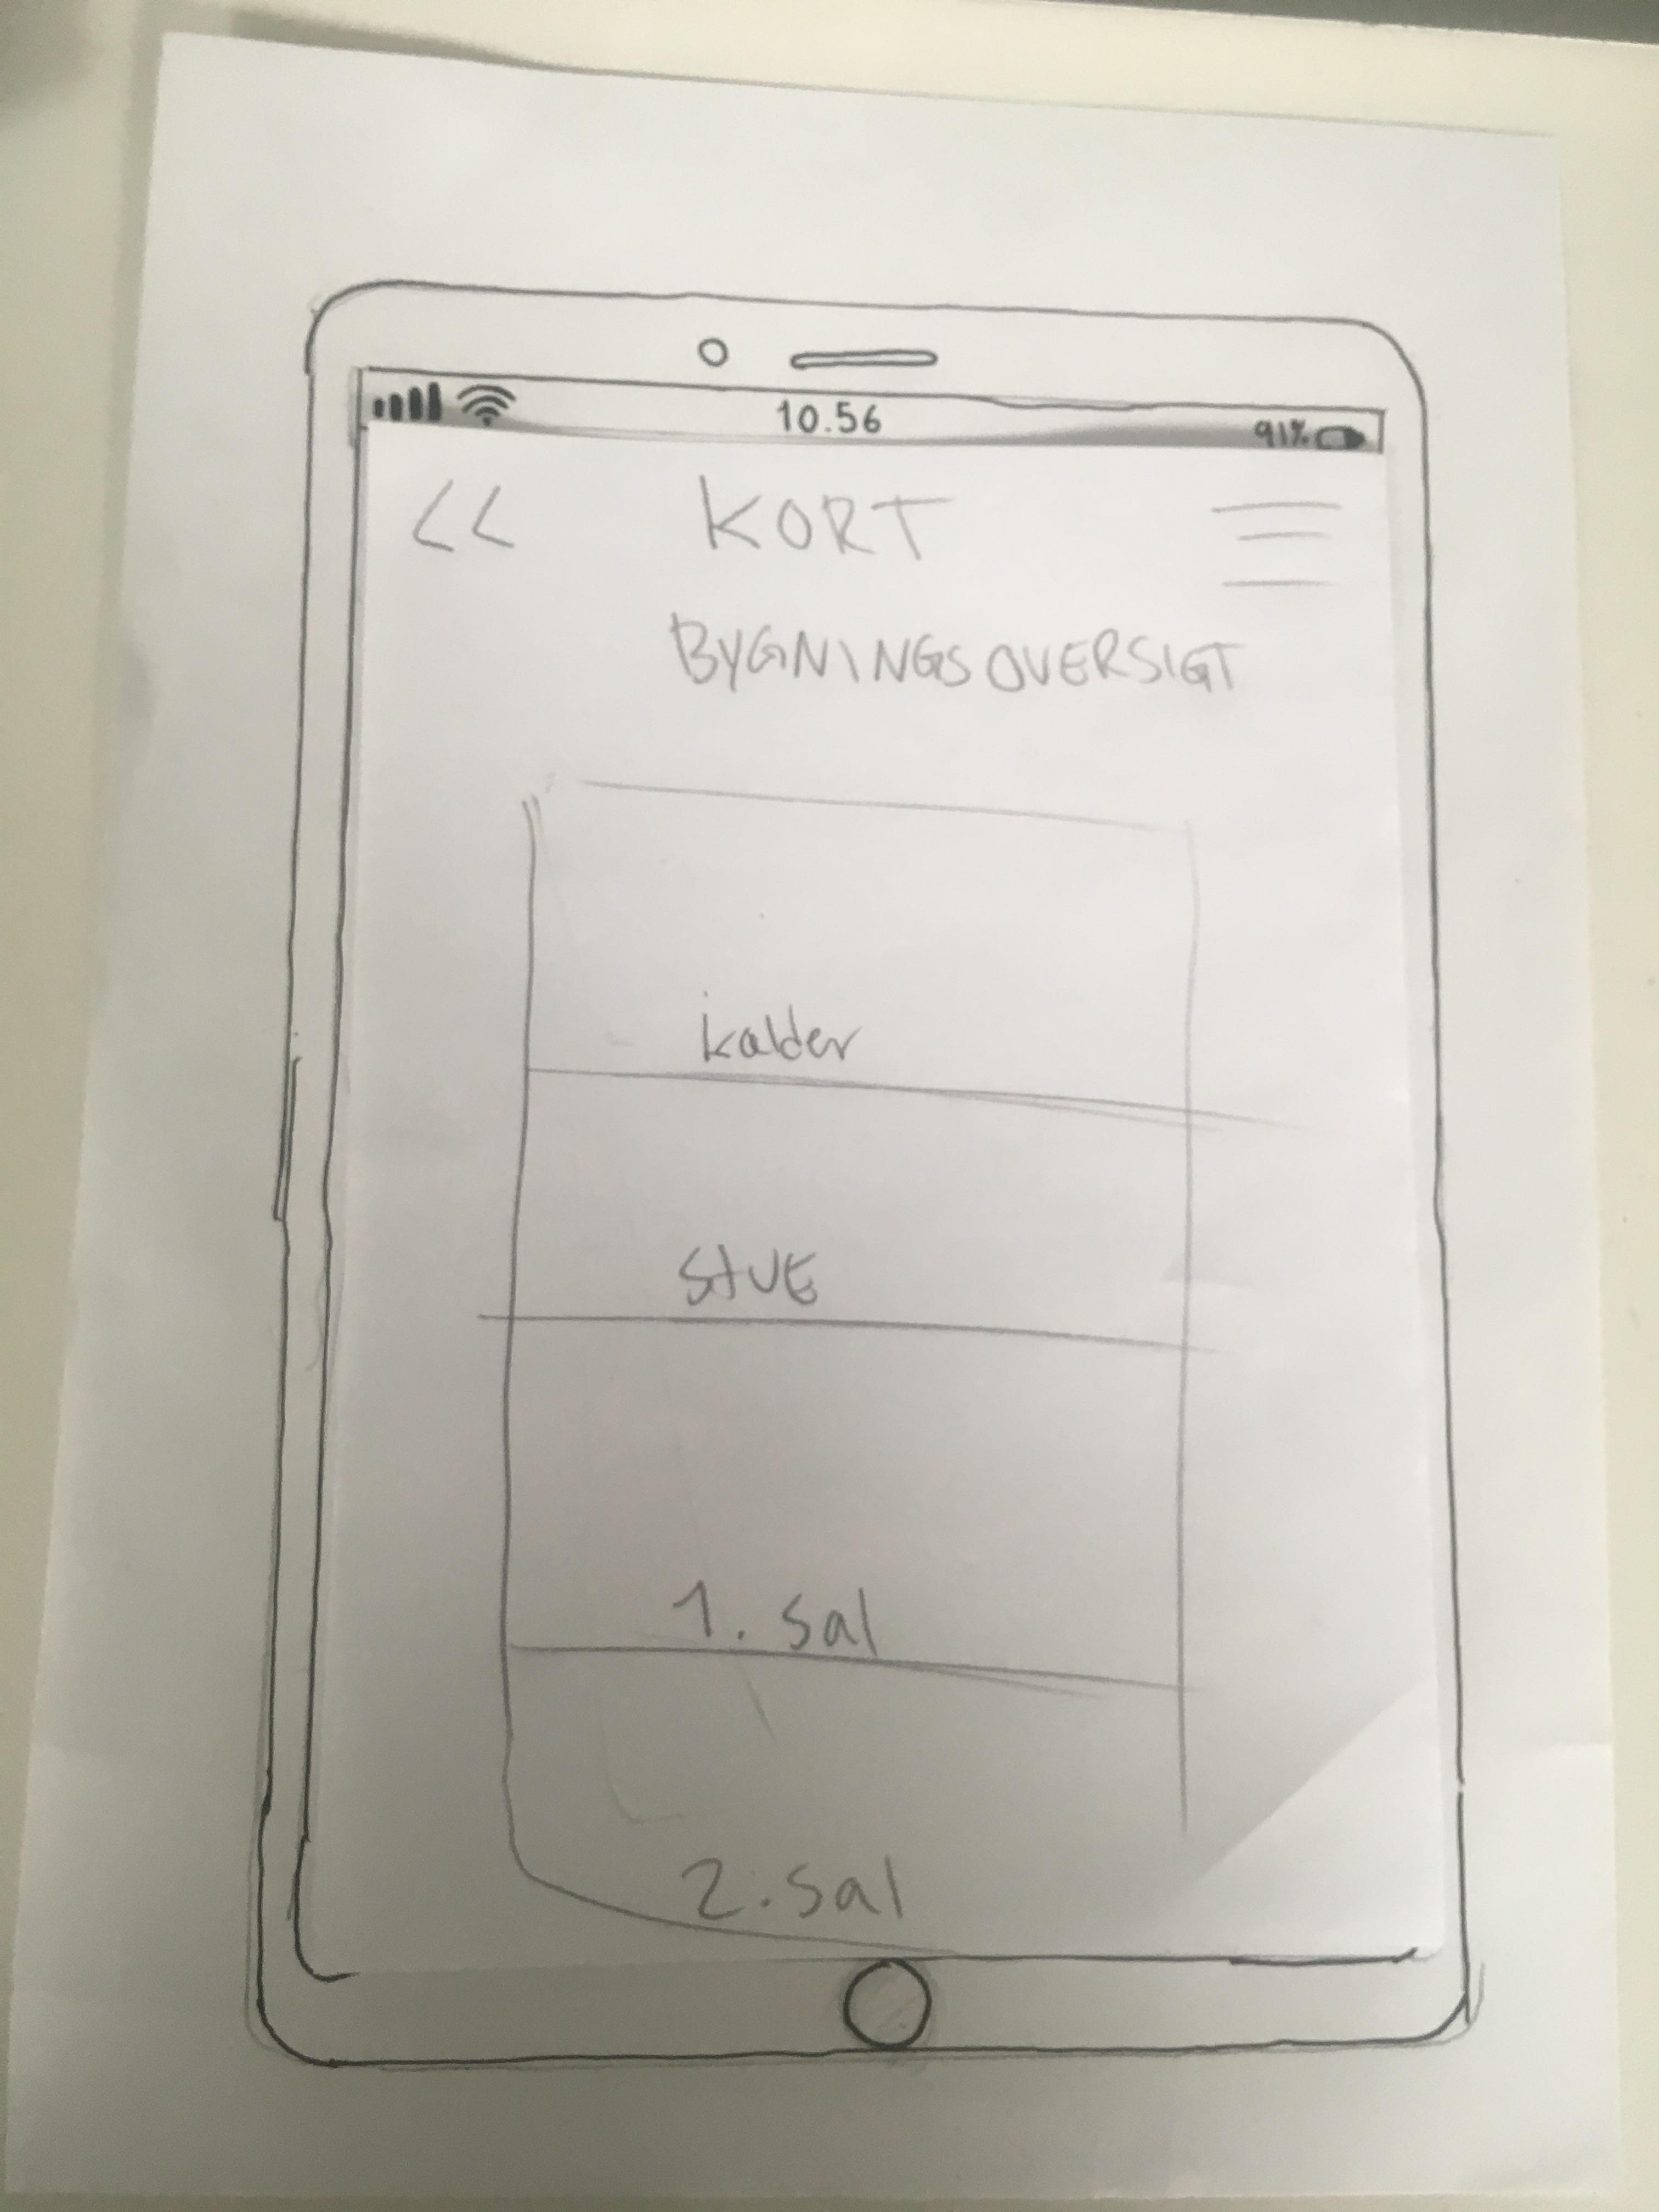 10.56 91%
<< KORT
BYGNINGSOVERSIGT
kalder
StUE
1. sal
2. sal